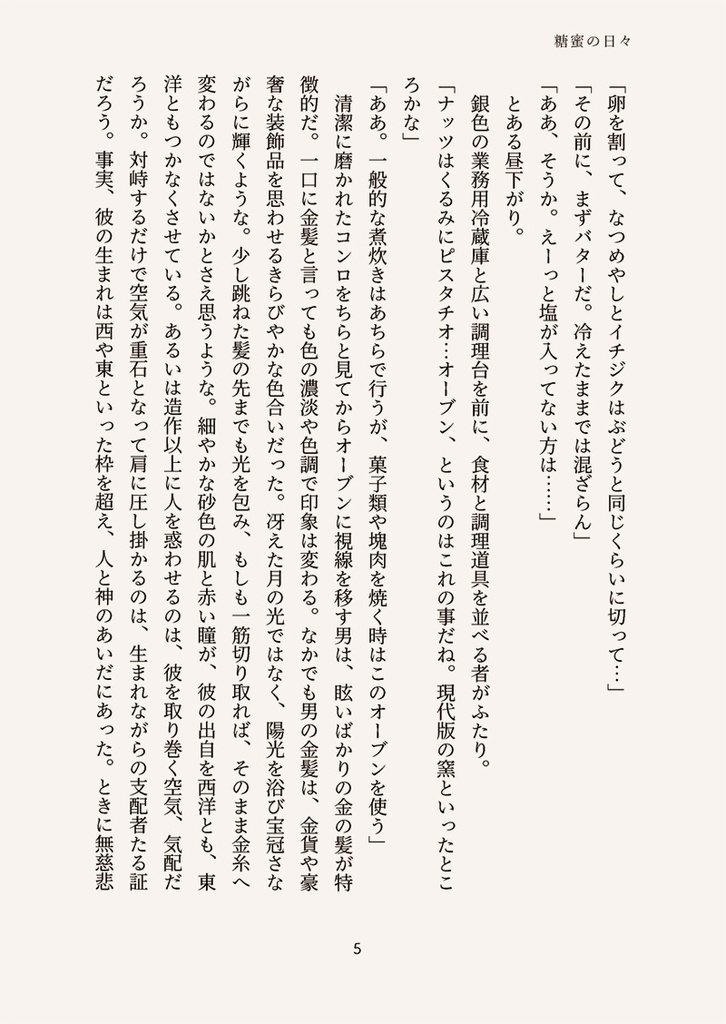 糖蜜の日々
「卵を割って、なつめやしとイチジクはぶどうと同じくらいに切って…」
「その前に、まずバターだ。冷えたままでは混ざらん」
「ああ、そうか。えーっと塩が入ってない方は……」
とある昼下がり。
銀色の業務用冷蔵庫と広い調理台を前に、食材と調理道具を並べる者がふたり。
「ナッツはくるみにピスタチオ…オーブン、というのはこれの事だね。現代版の窯といったとこ
ろかな」
「ああ。一般的な煮炊きはあちらで行うが、菓子類や塊肉を焼く時はこのオーブンを使う」
清潔に磨かれたコンロをちらと見てからオーブンに視線を移す男は、眩いばかりの金の髪が特
徴的だ。一口に金髪と言っても色の濃淡や色調で印象は変わる。なかでも男の金髪は、金貨や豪
奢な装飾品を思わせるきらびやかな色合いだった。冴えた月の光ではなく、陽光を浴び宝冠さな
がらに輝くような。少し跳ねた髪の先までも光を包み、もしも一筋切り取れば、そのまま金糸へ
変わるのではないかとさえ思うような。細やかな砂色の肌と赤い瞳が、彼の出自を西洋とも、東
洋ともつかなくさせている。あるいは造作以上に人を惑わせるのは、彼を取り巻く空気、気配だ
ろうか。対峙するだけで空気が重石となって肩に圧し掛かるのは、生まれながらの支配者たる証
だろう。事実、彼の生まれは西や東といった枠を超え、人と神のあいだにあった。ときに無慈悲
5